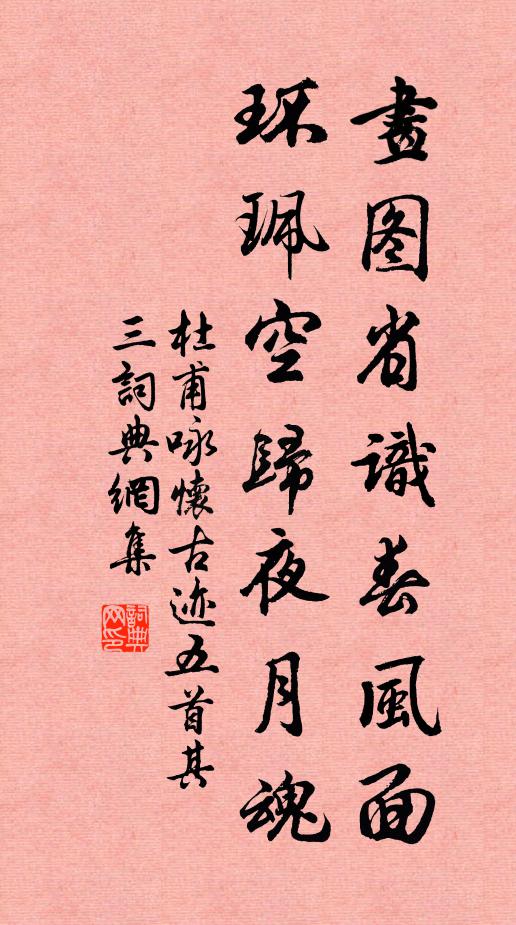 畫图省識春風面
环珮空歸夜月魂
杜甫咏懷古迹五首其
三詞典網集
詞典
网印